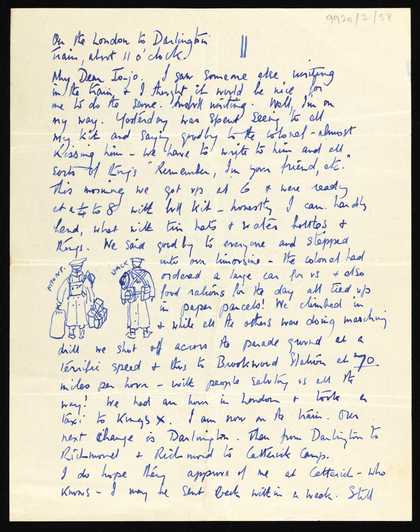 9920/2/58
On the London to Darlington
train, about 11 o'clock
My Dear Jonjo. I saw someone else writing
in the train, & I thought it would be nice for
me to do the same. writing. Well, I'm on
my way. Yesterday was spend seeing to all
my kit and saying goodby to the colonel - almost
kissing him - we have to write to him and all
sorts of things "Remember, I'm your friend, etc."
This morning we got up at 6 & were ready
at ¼ to 8 with full kit - honestly I can hardly
stand, what with tin hats & water bottles &
things. We said goodby to everyone and stepped
into our limousine - the colonel had
ordered a large car for us & also
food rations for the day all tied up
in paper parcels! We climbed in
& while all the others were doing marching
FRONT.
BACK
drill we shot off across the parade ground at a
terrific speed & thus to Brookwood Station at 70
miles per hour - with people saluting us all the
way! We had an hour in London & took a
taxi to Kings X. I am now on the train. Our
next change is Darlington. Then from Darlington to
Richmond & Richmond to Catterick Camp.
I do hope they approve of me at Catterick - who
knows - I may be sent back within a week. Still